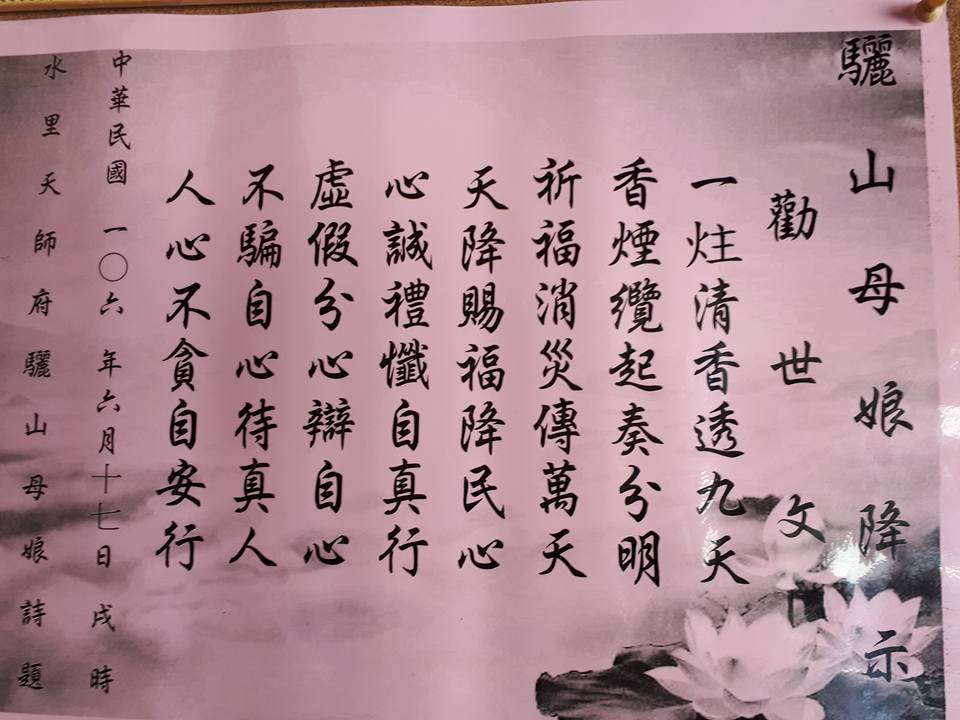 驪山母娘降示
勸世文
一炷清香透九天
香煙纜起奏分明
祈福消災傳萬天
天降賜福降民心
心誠禮懺自真行
虛假分心辯自心
不騙自心待真人
人心不貪自安行
中華民國一〇六年六月十七日戌時
水里天師府驪山母娘詩題